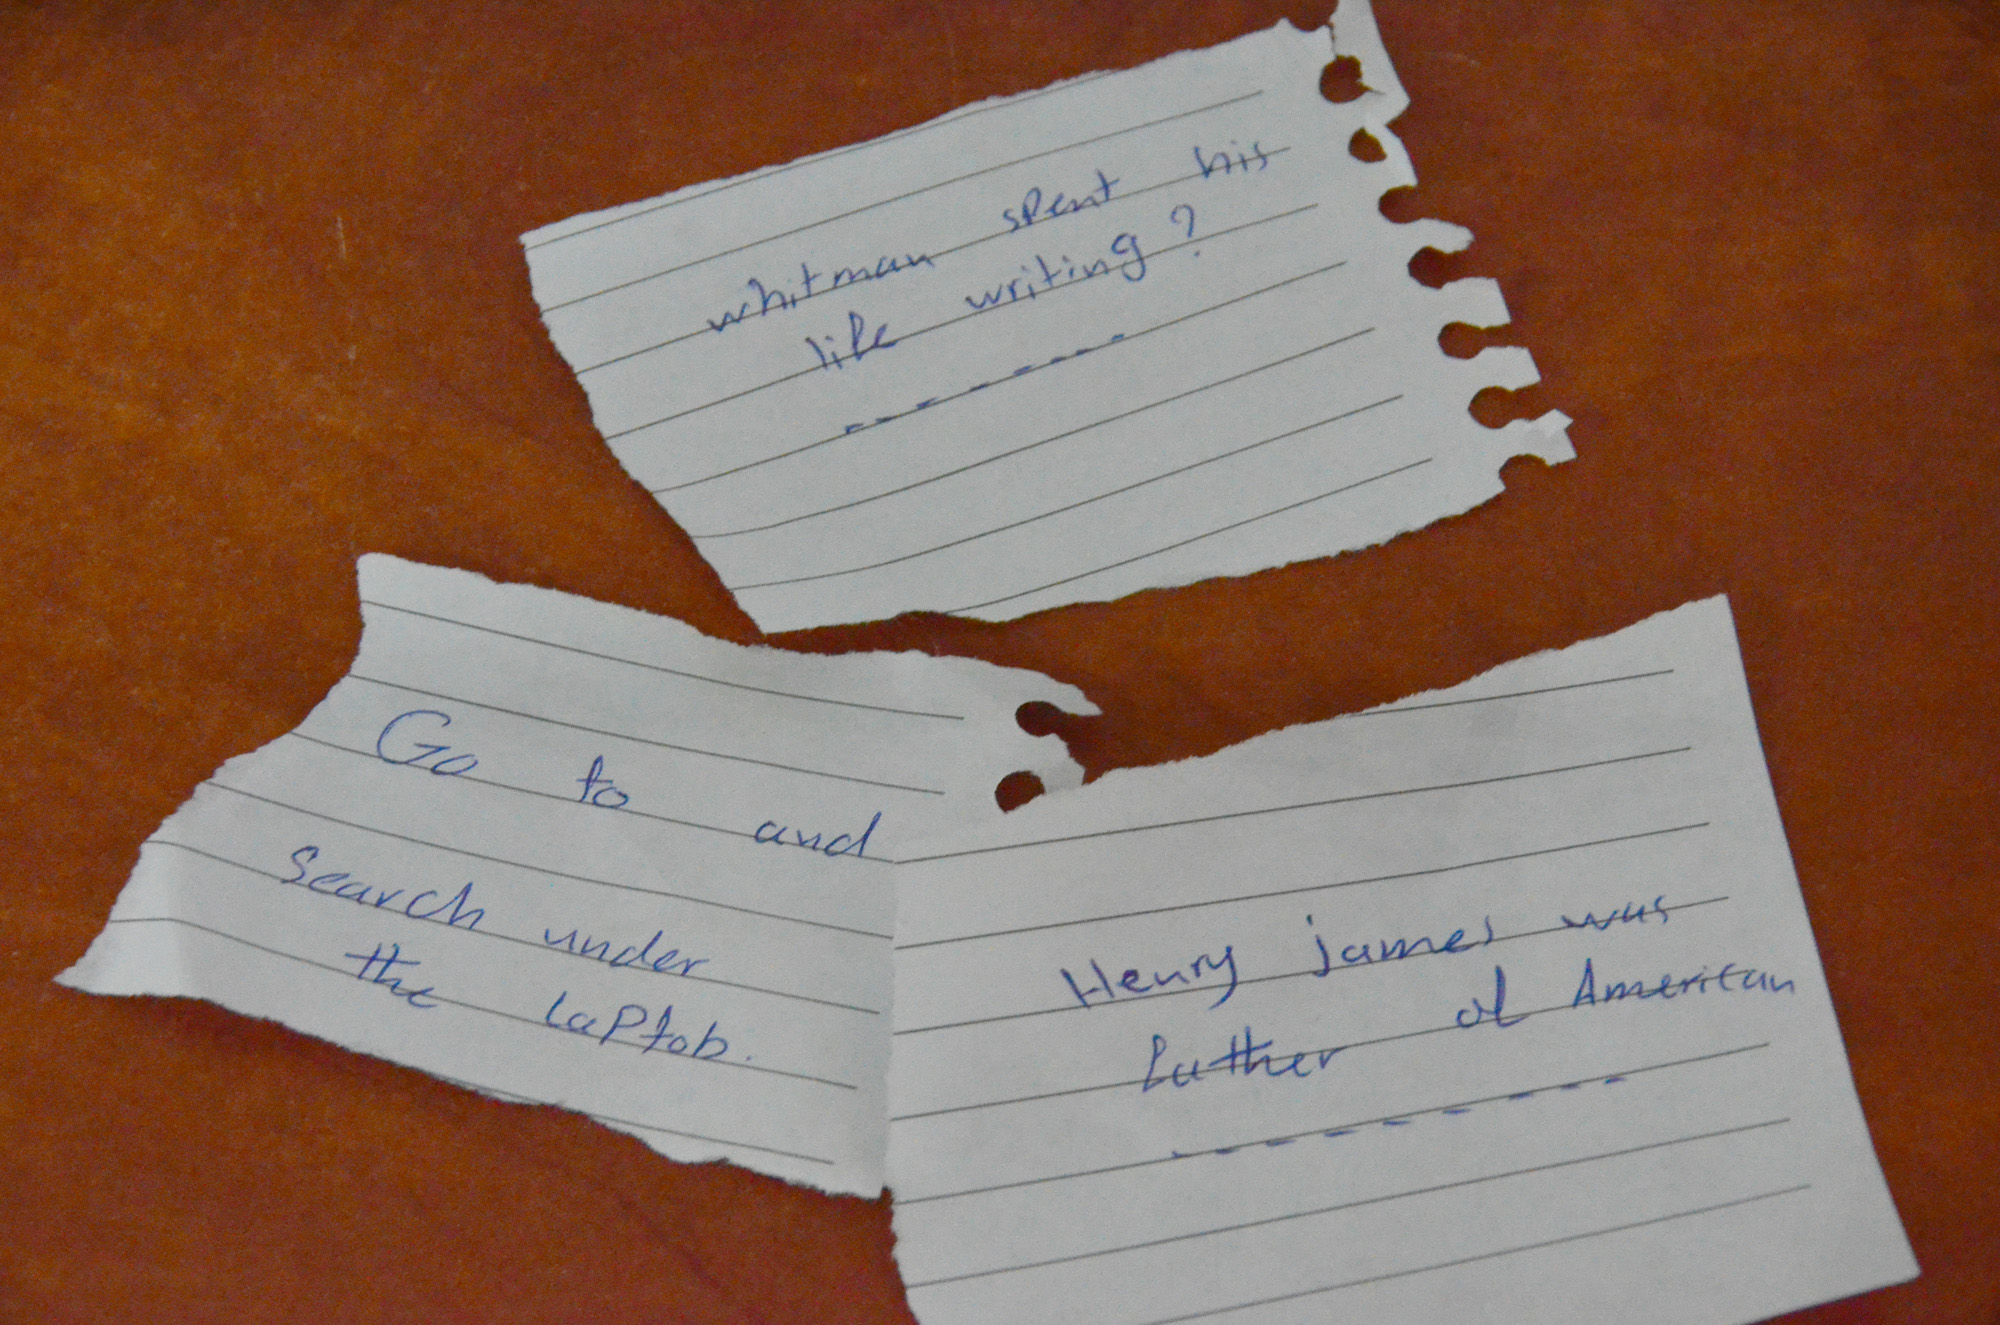 whitman spent his
life writing?
Go to and
Search under
the Laptob.
Henry james was
futher of American